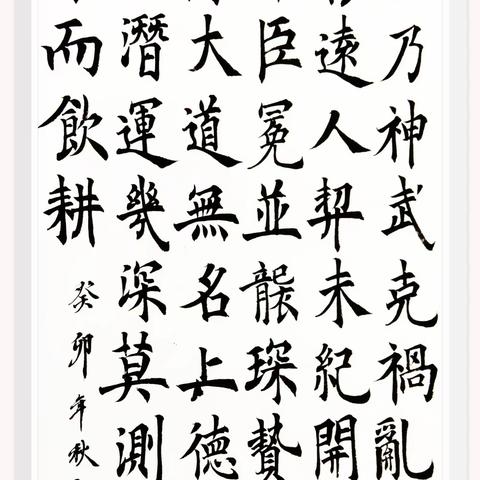 乃神武克禍亂
遠人契未紀開
臣冕並襲琛贄
大道無名上德
潛運幾深莫測
而飲耕
癸卯年秋